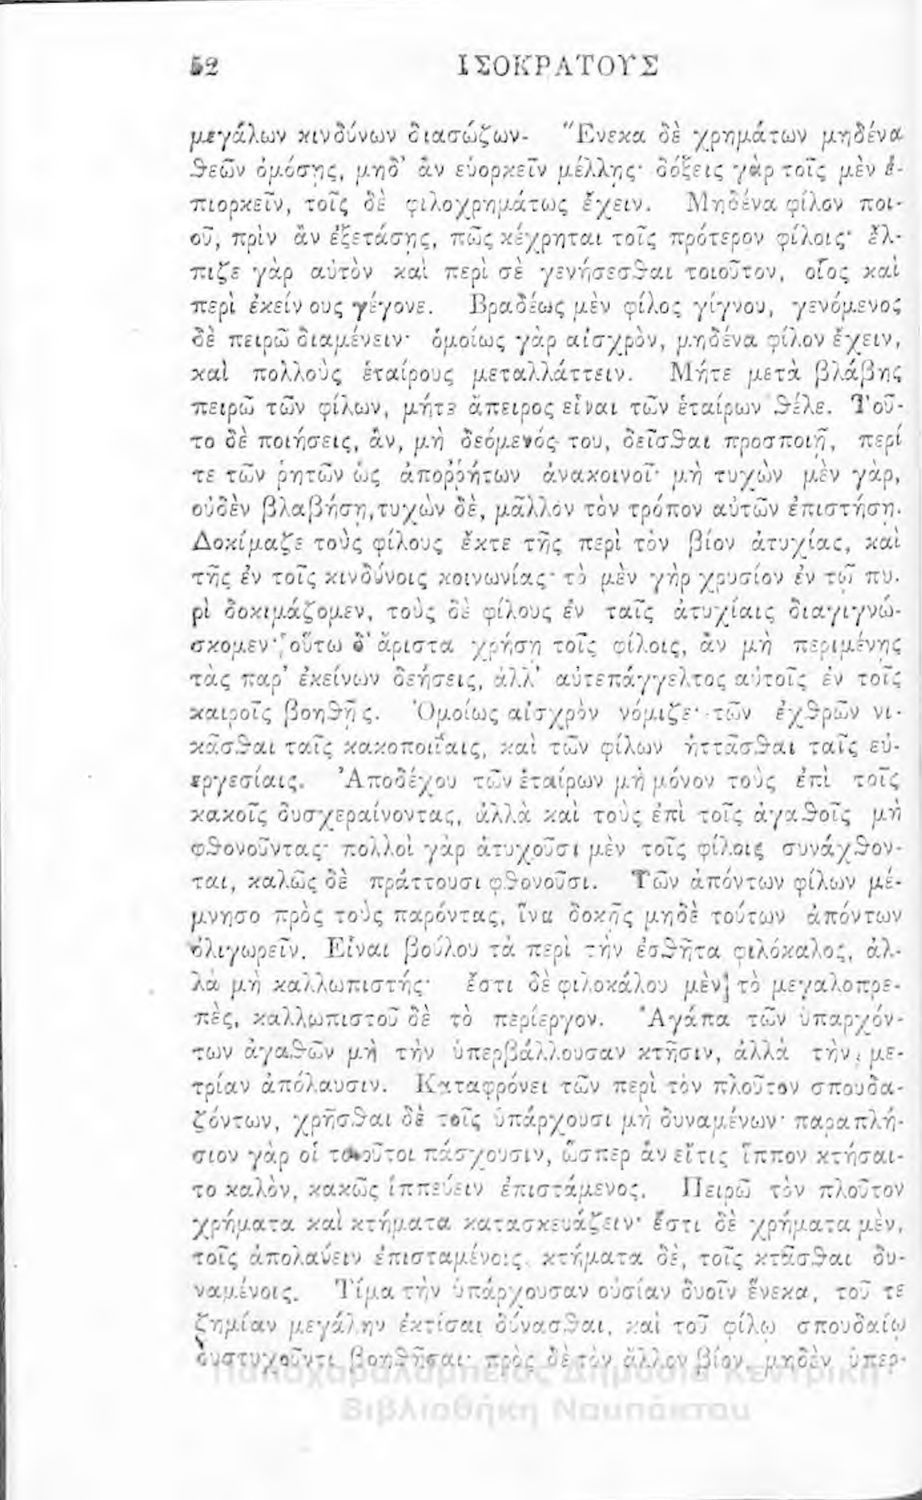 52 ΙΣΟΚΡΑΤΟΥΣ
μεγάλων κινδύνων διασώζων· Ἕνεκα δὲ χρημάτων μηδένα
θεῶν ὀμόσῃς, μηδ' ἂν εὐορκεῖν μέλλῃς· δόξεις γὰρ τοῖς μὲν ἐ-
πιορκεῖν, τοῖς δὲ φιλοχρημάτως ἔχειν. Μηδένα φίλον ποι-
οῦ, πρὶν ἂν ἐξετάσῃς, πῶς κέχρηται τοῖς πρότερον φίλοις· ἔλ-
πιζε γὰρ αὐτὸν καὶ περὶ σὲ γενήσεσθαι τοιοῦτον, οἷος καὶ
περὶ ἐκείνους γέγονε. Βραδέως μὲν φίλος γίγνου, γενόμενος
δὲ πειρῶ διαμένειν· ὁμοίως γὰρ αἰσχρὸν, μηδένα φίλον ἔχειν,
καὶ πολλοὺς ἑταίρους μεταλλάττειν. Μήτε μετὰ βλάβης
πειρῶ τῶν φίλων, μήτε ἄπειρος εἶναι τῶν ἑταίρων θέλε. Τοῦ-
το δὲ ποιήσεις, ἂν, μὴ δεόμενός του, δεῖσθαι προσποιῇ, περί
τε τῶν ῥητῶν ὡς ἀποῤῥήτων ἀνακοινοῖ· μὴ τυχὼν μὲν γὰρ,
οὐδὲν βλαβήσῃ, τυχὼν δὲ, μᾶλλον τὸν τρόπον αὐτῶν ἐπιστήσῃ.
Δοκίμαζε τοὺς φίλους ἔκ τε τῆς περὶ τὸν βίον ἀτυχίας, καὶ
τῆς ἐν τοῖς κινδύνοις κοινωνίας· τὸ μὲν γὴρ χρυσίον ἐν τῷ πυ-
ρὶ δοκιμάζομεν, τοὺς δὲ φίλους ἐν ταῖς ἀτυχίαις διαγιγνώ-
σκομεν· οὕτω δ' ἄριστα χρήσῃ τοῖς φίλοις, ἂν μὴ περιμένῃς
τὰς παρ' ἐκείνων δεήσεις, ἀλλ' αὐτεπάγγελτος αὐτοῖς ἐν τοῖς
καιροῖς βοηθῇς. Ὁμοίως αἰσχρὸν νόμιζε τῶν ἐχθρῶν νι-
κᾶσθαι ταῖς κακοποιΐαις, καὶ τῶν φίλων ἡττᾶσθαι ταῖς εὐ-
εργεσίαις. Ἀποδέχου τῶν ἑταίρων μὴ μόνον τοὺς ἐπὶ τοῖς
κακοῖς δυσχεραίνοντας, ἀλλὰ καὶ τοὺς ἐπὶ τοῖς ἀγαθοῖς μὴ
φθονοῦντας· πολλοὶ γὰρ ἀτυχοῦσι μὲν τοῖς φίλοις συνάχθον-
ται, καλῶς δὲ πράττουσι φθονοῦσι. Τῶν ἀπόντων φίλων μέ-
μνησο πρὸς τοὺς παρόντας, ἵνα δοκῇς μηδὲ τούτων ἀπόντων
ὀλιγωρεῖν. Εἶναι βούλου τὰ περὶ τὴν ἐσθῆτα φιλόκαλος, ἀλ-
λὰ μὴ καλλωπιστής· ἔστι δὲ φιλοκάλου μὲν τὸ μεγαλοπρε-
πὲς, καλλωπιστοῦ δὲ τὸ περίεργον. Ἀγάπα τῶν ὑπαρχόν-
των ἀγαθῶν μὴ τὴν ὑπερβάλλουσαν κτῆσιν, ἀλλὰ τὴν με-
τρίαν ἀπόλαυσιν. Καταφρόνει τῶν περὶ τὸν πλοῦτον σπουδα-
ζόντων, χρῆσθαι δὲ τοῖς ὑπάρχουσι μὴ δυναμένων· παραπλή-
σιον γὰρ οἱ τοιοῦτοι πάσχουσιν, ὥσπερ ἂν εἴτις ἵππον κτήσαι-
το καλὸν, κακῶς ἱππεύειν ἐπιστάμενος. Πειρῶ τὸν πλοῦτον
χρήματα καὶ κτήματα κατασκευάζειν· ἔστι δὲ χρήματα μὲν,
τοῖς ἀπολαύειν ἐπισταμένοις, κτήματα δὲ, τοῖς κτᾶσθαι δυ-
ναμένοις. Τίμα τὴν ὑπάρχουσαν οὐσίαν δυοῖν ἕνεκα, τοῦ τε
ζημίαν μεγάλην ἐκτίσαι δύνασθαι, καὶ τοῦ φίλῳ σπουδαίῳ
δυστυχοῦντι βοηθῆσαι· πρὸς δὲ τὸν ἄλλον βίον, μηδὲν ὑπερ-
Παπαχαραλάμπειος Δημόσια Κεντρική
Βιβλιοθήκη Ναυπάκτου